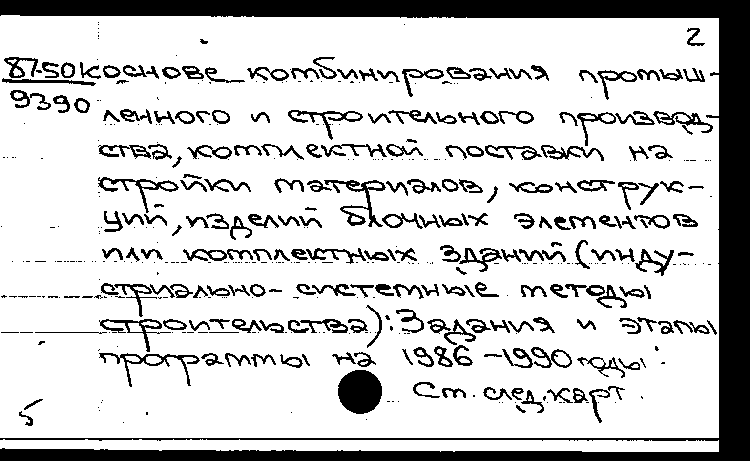 2
87-50к основе комбинирования промыш-
9390 ленного и строительного производ-
ства, комплектной поставки на
стройки материалов, конструк-
ций, изделий блочных элементов
или комплектных зданий (инду-
стриально-системные методы
строительства): Задания и этапы
программы на 1986-1990 годы.
См. след. карт.
5